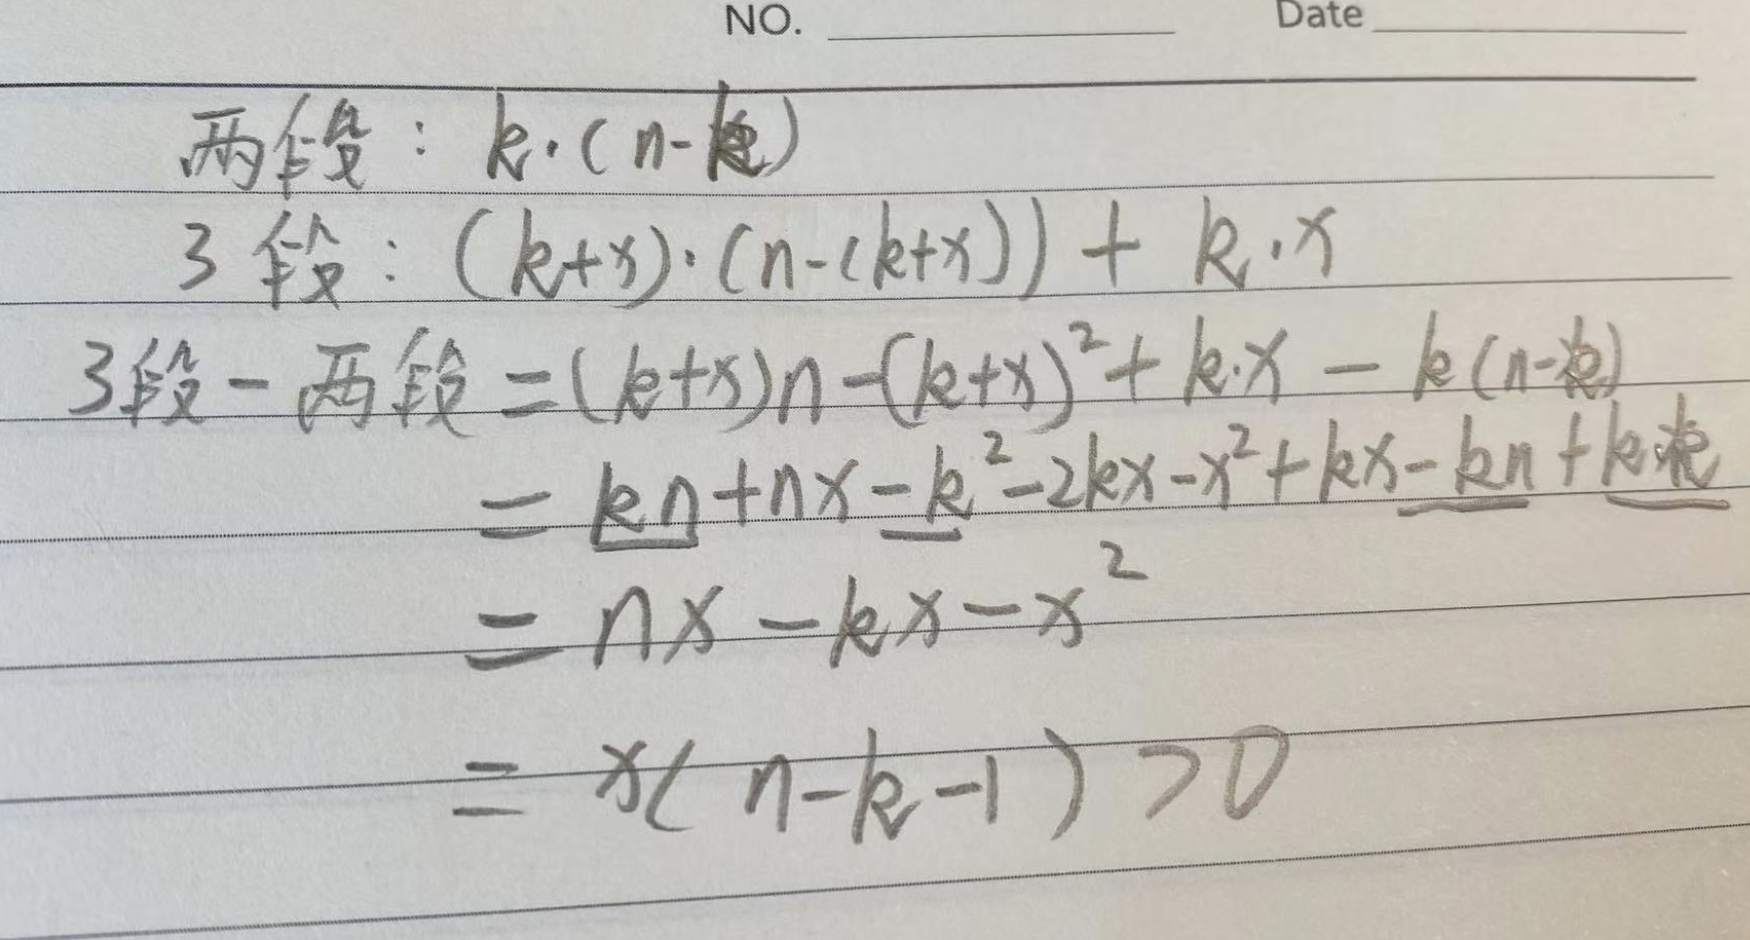 NO. Date
两段: k·(n-k)
3段: (k+x)·(n-(k+x)) + k·x
3段-两段 = (k+x)n-(k+x)²+k·x-k(n-k)
= kn+nx-k²-2kx-x²+kx-kn+k·k
= nx-kx-x²
= x(n-k-1)>0